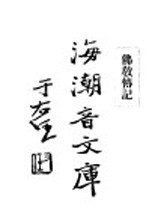 佛敎傳記
海潮音文庫
于右任